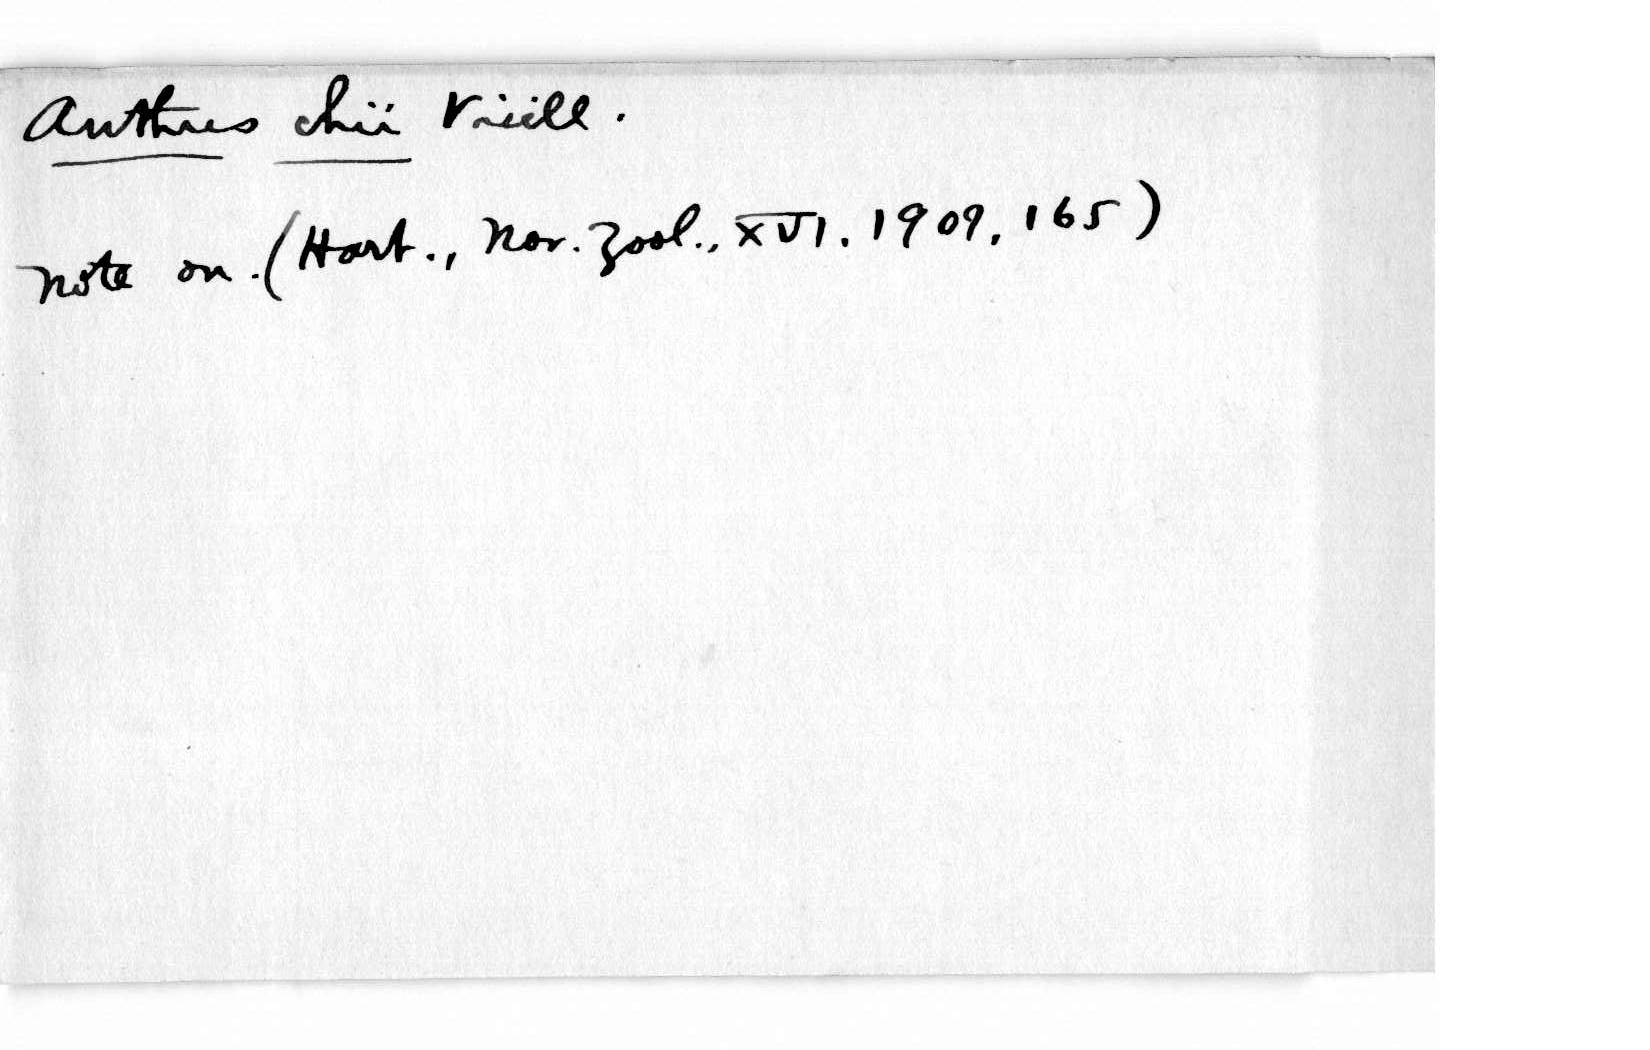 Anthus chii Vieill.
Note on. (Hart., Nov. Zool., XVI. 1909, 165)